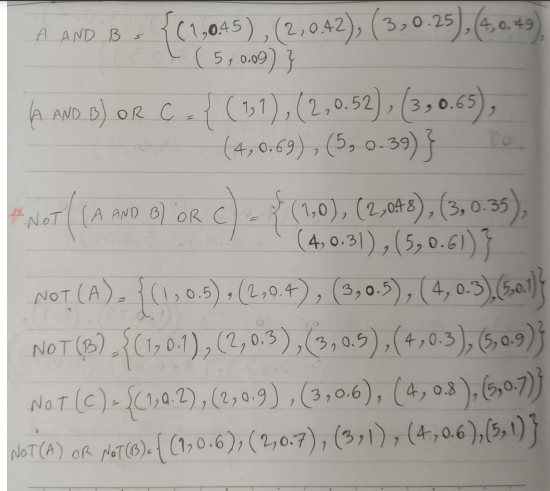 A AND B = {(1,0.45), (2,0.42), (3,0.25), (4,0.49),
(5,0.09)}
(A AND B) OR C = {(1,1), (2,0.52), (3,0.65),
(4,0.69), (5,0.39)}
* NOT((A AND B) OR C) = {(1,0), (2,0.48), (3,0.35),
(4,0.31), (5,0.61)}
NOT(A) = {(1,0.5), (2,0.4), (3,0.5), (4,0.3), (5,0.1)}
NOT(B) = {(1,0.1), (2,0.3), (3,0.5), (4,0.3), (5,0.9)}
NOT(C) = {(1,0.2), (2,0.9), (3,0.6), (4,0.8), (5,0.7)}
NOT(A) OR NOT(B) = {(1,0.6), (2,0.7), (3,1), (4,0.6), (5,1)}